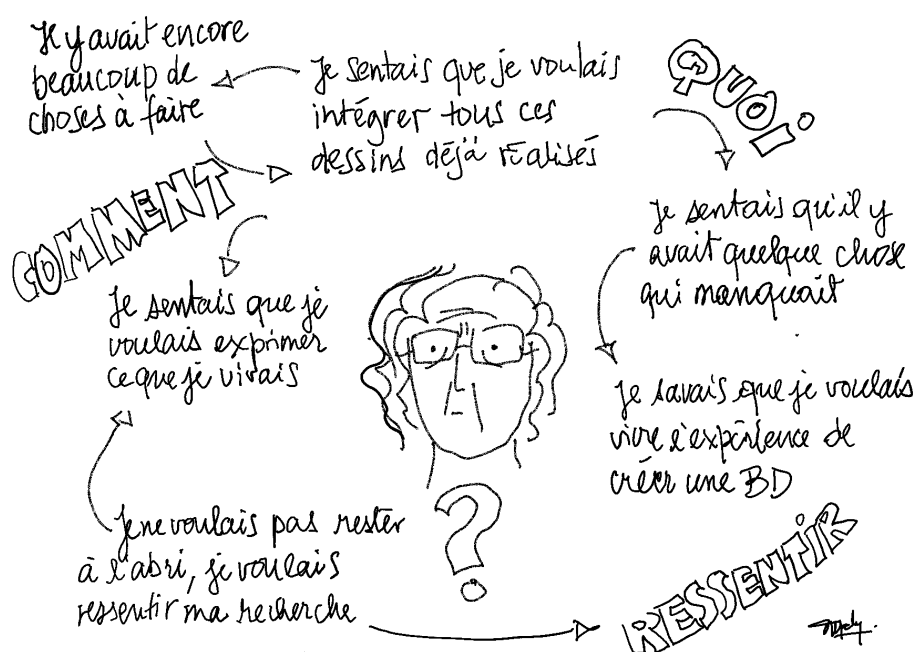 Il y avait encore
beaucoup de
choses à faire
Je sentais que je voulais
intégrer tous ces
dessins déjà réalisés
QUOI
COMMENT
Je sentais qu'il y
avait quelque chose
qui manquait
Je sentais que je
voulais exprimer
ce que je vivais
Je savais que je voulais
vivre l'expérience de
créer une BD
Je ne voulais pas rester
à l'abri, je voulais
ressentir ma recherche
?
RESSENTIR